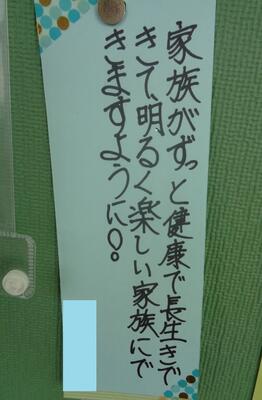 家族がずっと健康で長生きで
きて、明るく楽しい家族にで
きますように○。